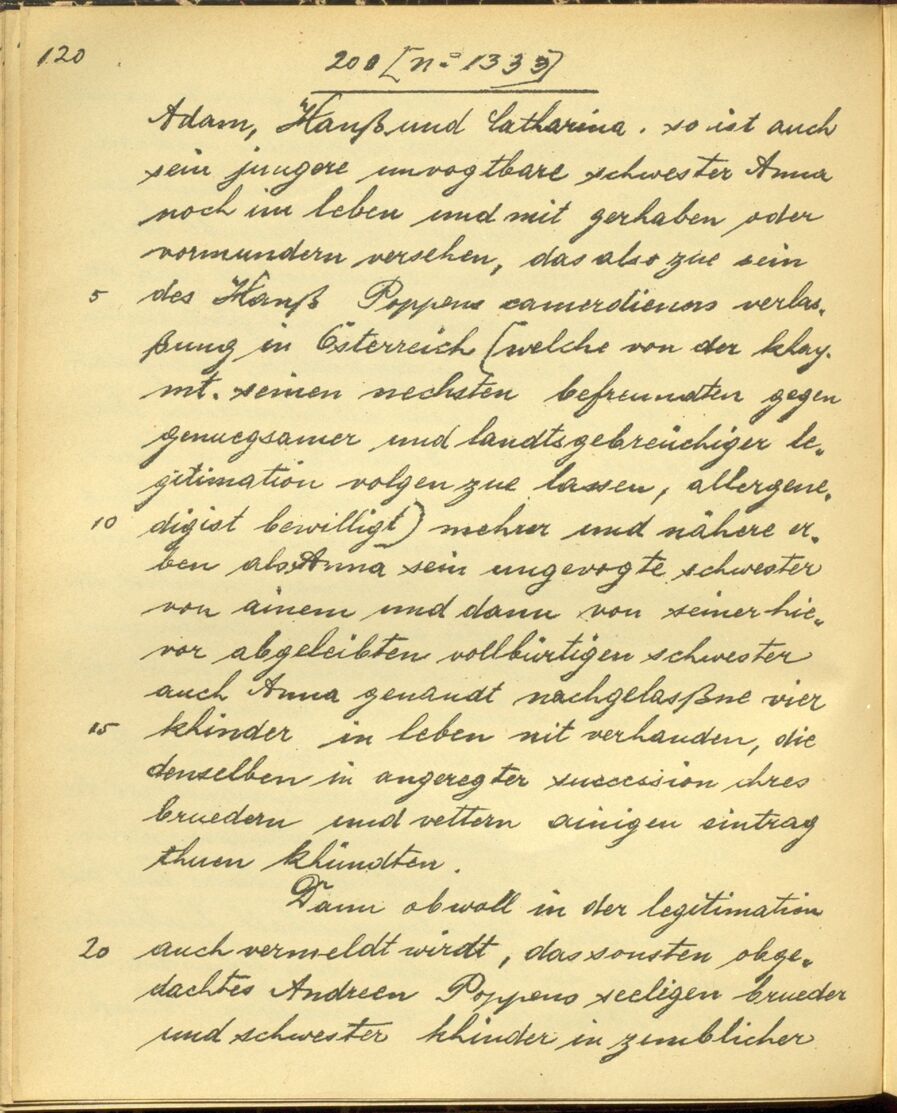 120
200 [No 1333]
Adam, Hanß und Catharina. so ist auch
sein jungere unvogtbare schwester Anna
noch im leben und mit gerhaben oder
vormundern versehen, das also zue sein
5 des Hanß Poppens camerdieners verlas„
ßung in Österreich (welche von der khay.
mt. seinen nechsten befreundten gegen
genuegsamer und landtsgebreüchiger le„
gitimation volgen zue lassen, allergene„
10 digist bewilligt) mehrer und nähere er„
ben als Anna sein ungevogte schwester
von ainem und dann von seiner hie„
vor abgeleibten vollbürtigen schwester
auch Anna genandt nachgelaßne vier
15 khinder in leben nit verhanden, die
denselben in angeregter succession ihres
bruedern und vettern ainigen eintrag
thuen khündten.
Dann obwoll in der legitimation
20 auch vermeldt wirdt, das sonsten obge„
dachtes Andreen Poppens seeligen brueder
und schwester khinder in zimblicher